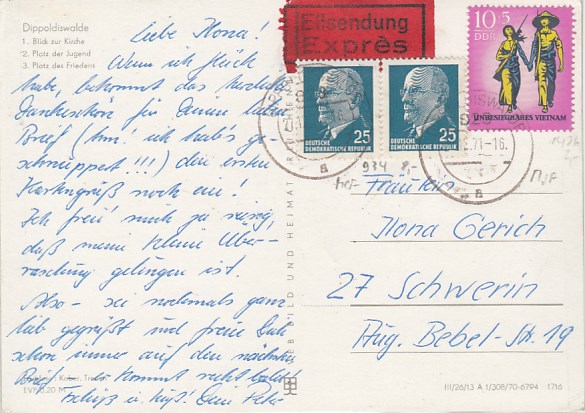 Dippoldiswalde
1. Blick zur Kirche
2. Platz der Jugend
3. Platz des Friedens
Liebe Ilona!
Wenn ich glück
habe, bekommst das herzliche
Dankeschön für Deinen lieben
Brief (hm! ich hab's ge-
schnuppert!!!) den ersten
Kartengruß noch ein!
Ich freu' mich ja riesig,
daß meine kleine Über-
raschung gelungen ist.
Also - sei nochmals ganz
lieb gegrüßt und freue Dich
schon immer auf den nächsten
Brief - er kommt recht bald!
Tschüß u. Kuß! Dein Peter
1 VP 0,20 M
BILD UND HEIMAT
Eilsendung
Exprès
DEUTSCHE
DEMOKRATISCHE REPUBLIK
25
DEUTSCHE
DEMOKRATISCHE REPUBLIK
25
10+5
DDR
UNBESIEGBARES VIETNAM
71-16
a
a
934
Fräulein
Ilona Gerich
27 Schwerin
Aug. Bebel-Str. 19
III/26/13 A 1/308/70-6794 1716